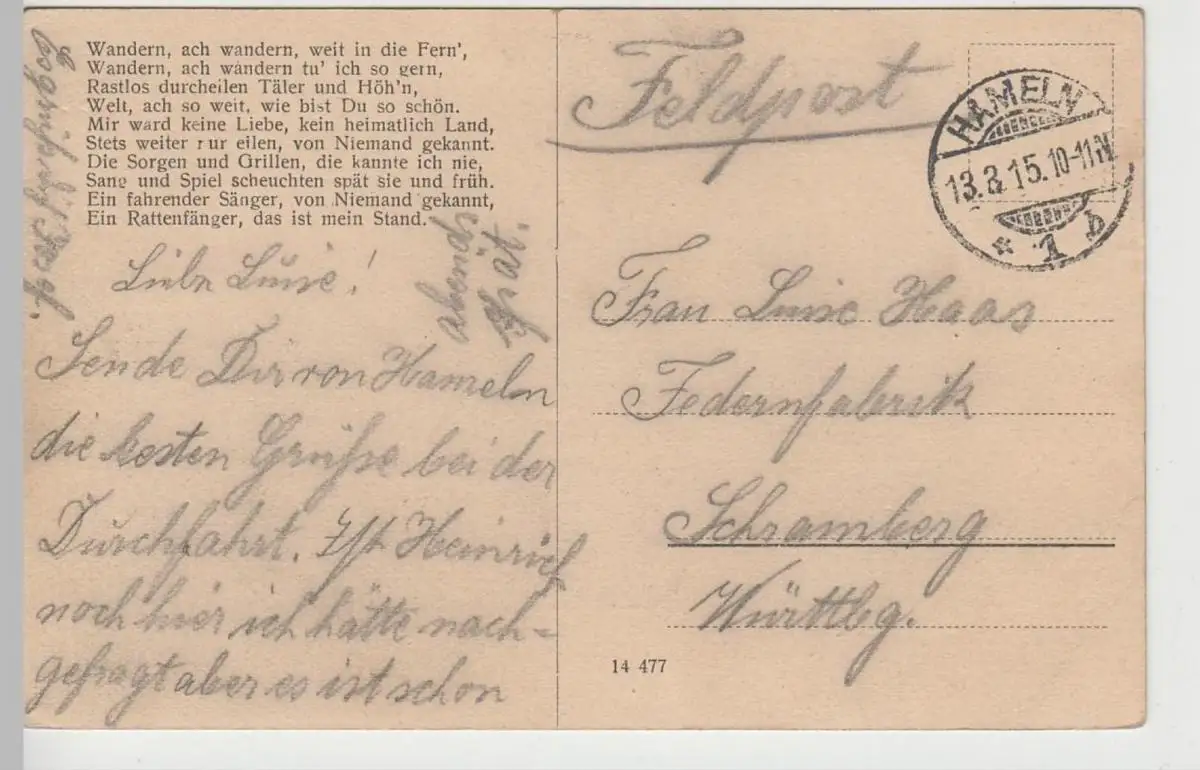 Wandern, ach wandern, weit in die Fern',
Wandern, ach wandern tu' ich so gern,
Rastlos durcheilen Täler und Höh'n,
Welt, ach so weit, wie bist Du so schön.
Mir ward keine Liebe, kein heimatlich Land,
Stets weiter nur eilen, von Niemand gekannt.
Die Sorgen und Grillen, die kannte ich nie,
Sang und Spiel scheuchten spät sie und früh.
Ein fahrender Sänger, von Niemand gekannt,
Ein Rattenfänger, das ist mein Stand.
Liebe Luise!
Sende Dir von Hameln
die besten Grüße bei der
Durchfahrt. Ist Heinrich
noch hier ich hätte nach-
gefragt aber es ist schon
abends
spät.
Josef.
Feldpost
HAMELN
13.8.15.10-11N
* 1 b
Frau Luise Haas
Federnfabrik
Schramberg
Württbg.
14 477